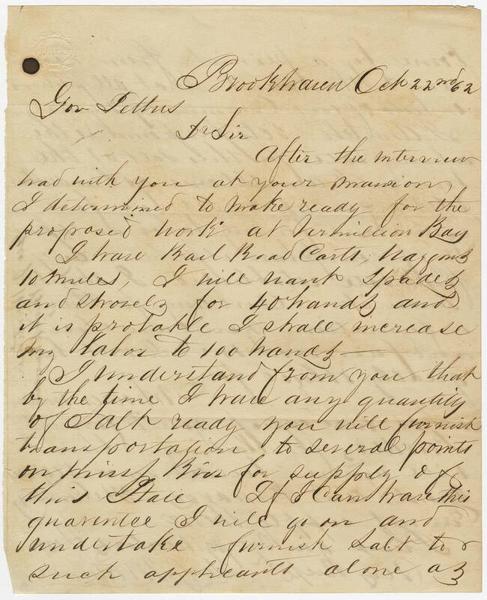 Brookhaven Oct 22nd 62
Gov Pettus
Dr Sir
After the interview
had with you at your mansion
I determined to make ready for the
proposed work at Vermillion Bay
I have Rail Road Carts, Waggons
10 mules, I will want Spades
and shovels for 40 hands and
it is probable I shall increase
my labor to 100 hands —
I understand from you that
by the time I have any quantity
of Salt ready you will furnish
transportation to several points
on Missp River for supply of
this State If I can have this
guarentee I will go on and
undertake furnish Salt to
such applicants alone as